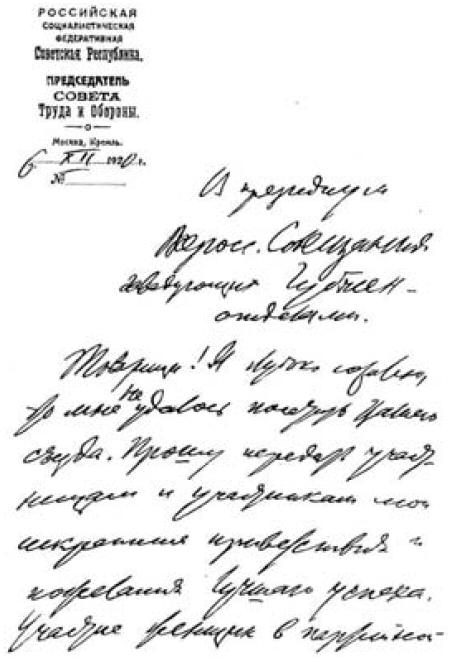 РОССИЙСКАЯ
СОЦИАЛИСТИЧЕСКАЯ
ФЕДЕРАТИВНАЯ
Советская Республика.
ПРЕДСЕДАТЕЛЬ
СОВЕТА
Труда и Обороны.
Москва, Кремль.
6 XII 1920 г.
№
В президиум
Всеросс. Совещания
заведующих Губжен-
отделами.
Товарищи! Я глубоко сожалею,
что мне не удалось посетить Вашего
съезда. Прошу передать участ-
ницам и участникам мои
искренние приветствия и
пожелания лучшаго успеха.
Участие женщин в партийной